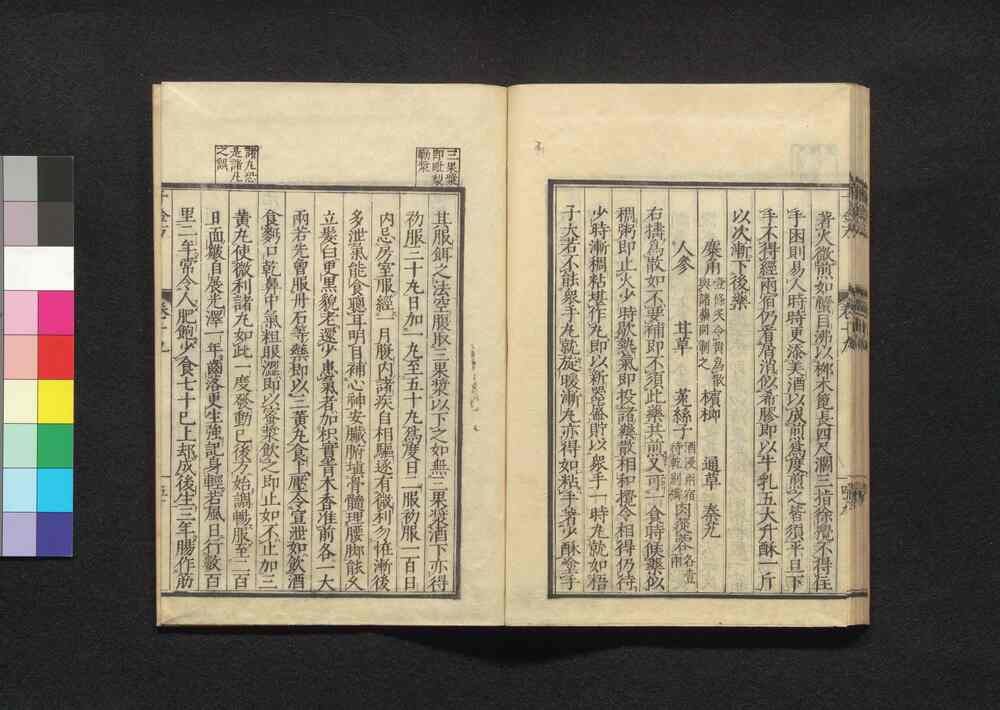 著火微煎如蟹目沸以柳木篦長四尺濶三指徐攪不得住
手困則易人時時更添美酒以成煎爲度煎之皆須平旦下
手不得經兩宿仍看屑消似稀膠即以牛乳五大升酥一斤
以次漸下後藥
麋角 壹條炙令黃爲散與諸藥同制之 檳榔 通草 秦艽
人參 甘草 菟絲子 酒浸兩宿待乾別擣 肉蓯蓉 各壹兩
右擣爲散如不要補即不須此藥共煎又可一食時候藥似
稠粥即止火少時歇熱氣即投諸藥散相和攪令相得仍待
少時漸稠粘堪作丸即以新器盛貯以衆手一時丸就如梧
子大若不能衆手丸就旋暖漸丸亦得如粘手著少酥塗手
三果漿即毗梨勒漿
其服餌之法空腹取三果漿以下之如無三果漿酒下亦得
初服三十九日加一丸至五十九爲度日二服初服一百日
內忌房室服經一月腹內諸疾自相驅逐有微利勿怪漸後
多泄氣能食聰耳明目補心神安臟腑塡骨髓理腰脚能久
立髮白更黑貌老還少患氣者加枳實青木香准前各一大
兩若先曾服丹石等藥即以三黃丸食上壓令宣泄如飲酒
食麪口乾鼻中氣粗眼澀即以蜜漿飲之即止如不止加三
諸九恐是諸凡之誤
黃丸使微利諸九如此一度發動已後方始調暢服至二百
日面皺自展光澤一年齒落更生强記身輕若風日行數百
里二年常令人肥飽少食七十已上却成後生三年腸作筋